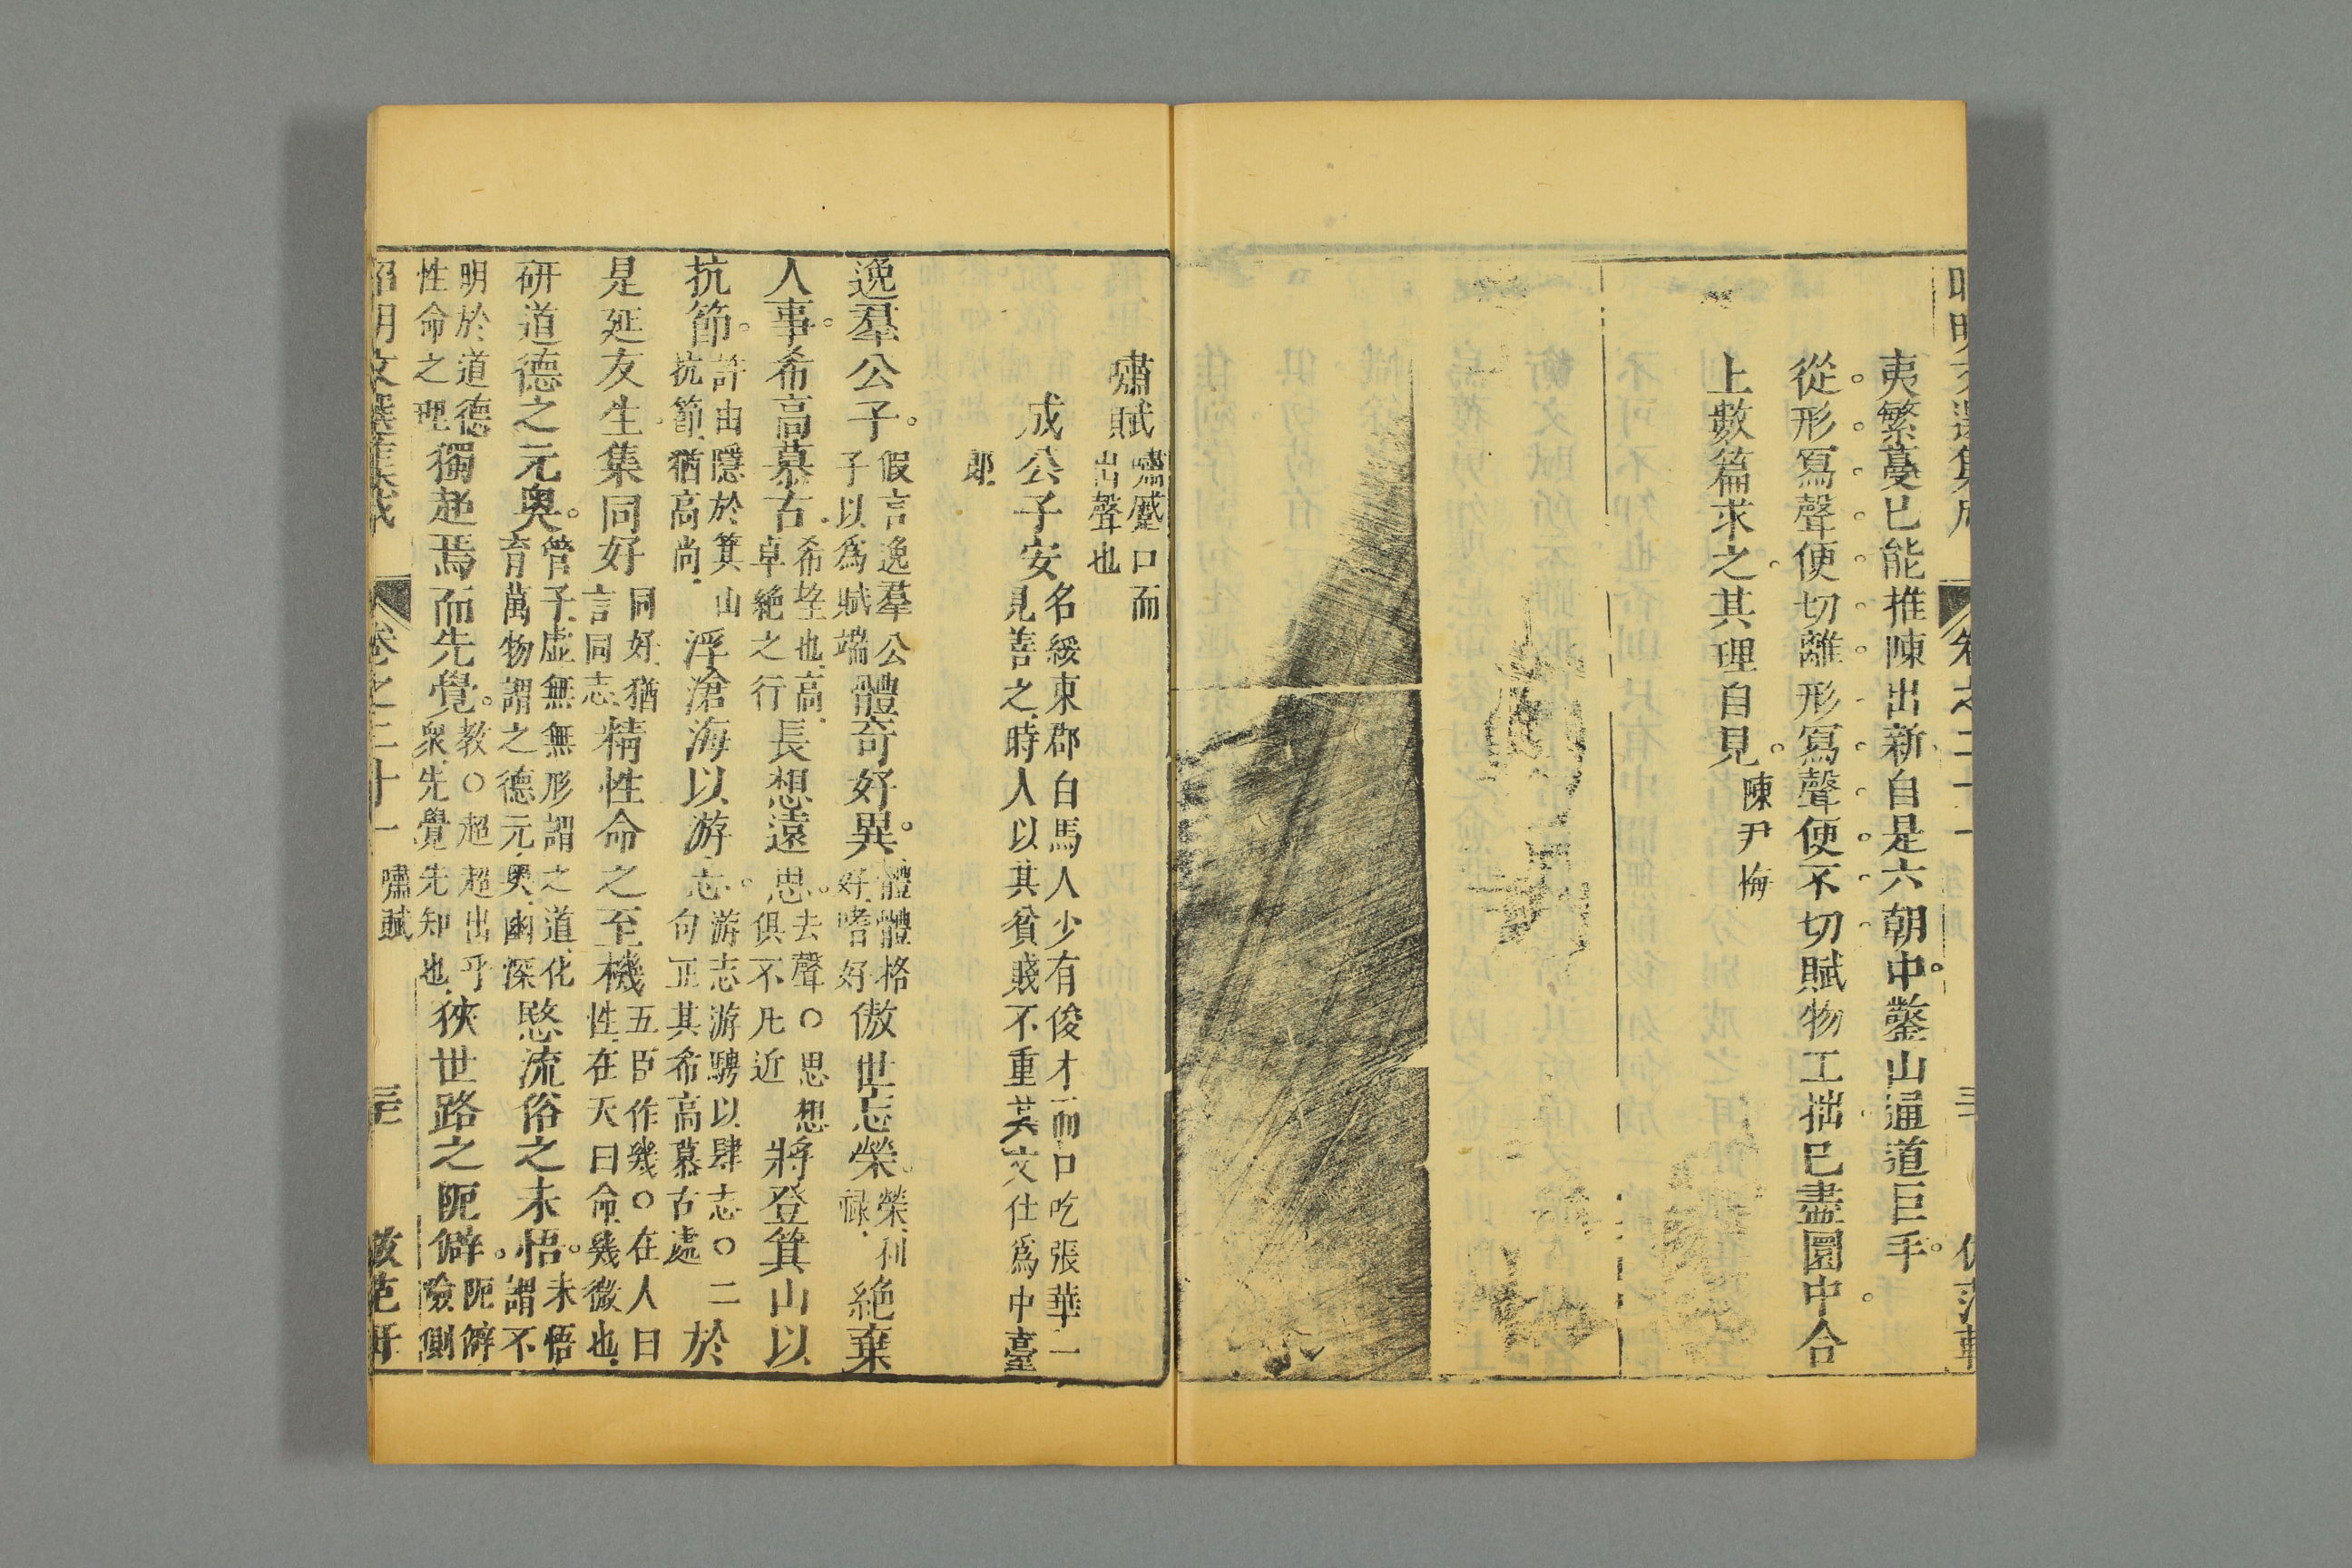 夷繁蔓已能推陳出新自是六朝中鑿山通道巨手
從形寫聲便切離形寫聲便不切賦物工拙已盡圜中合
上數篇求之其理自見陳尹梅
嘯賦
嘯蹙口而
出聲也
成公子安
名綏東郡白馬人少有俊才而口吃張華一
見善之時人以其貧賤不重其文仕爲中臺
郎
逸羣公子
假言逸羣公
子以爲賦端
體奇好異
體體格
好嗜好
傲世忘榮
榮利
祿
絶棄
人事希高慕古
希望也高
卓絶之行
長想遠思
去聲○思想
俱不凡近
將登箕山以
抗節
許由隱於箕山
抗節猶高尚
浮滄海以游志
游志游騁以肆志○二
句正其希高慕古處
於
是延友生集同好
同好猶
言同志
精性命之至機
五臣作幾○在人曰
性在天曰命幾微也
研道德之元奥
管子虛無無形謂之道化
育萬物謂之德元奥幽深
愍流俗之未悟
未悟
謂不
明於道德
性命之理
獨超焉而先覺
教○超超出乎
衆先覺先知也
狹世路之阨僻
阨僻
險側
昭明文選集成 卷之二十一 嘯賦